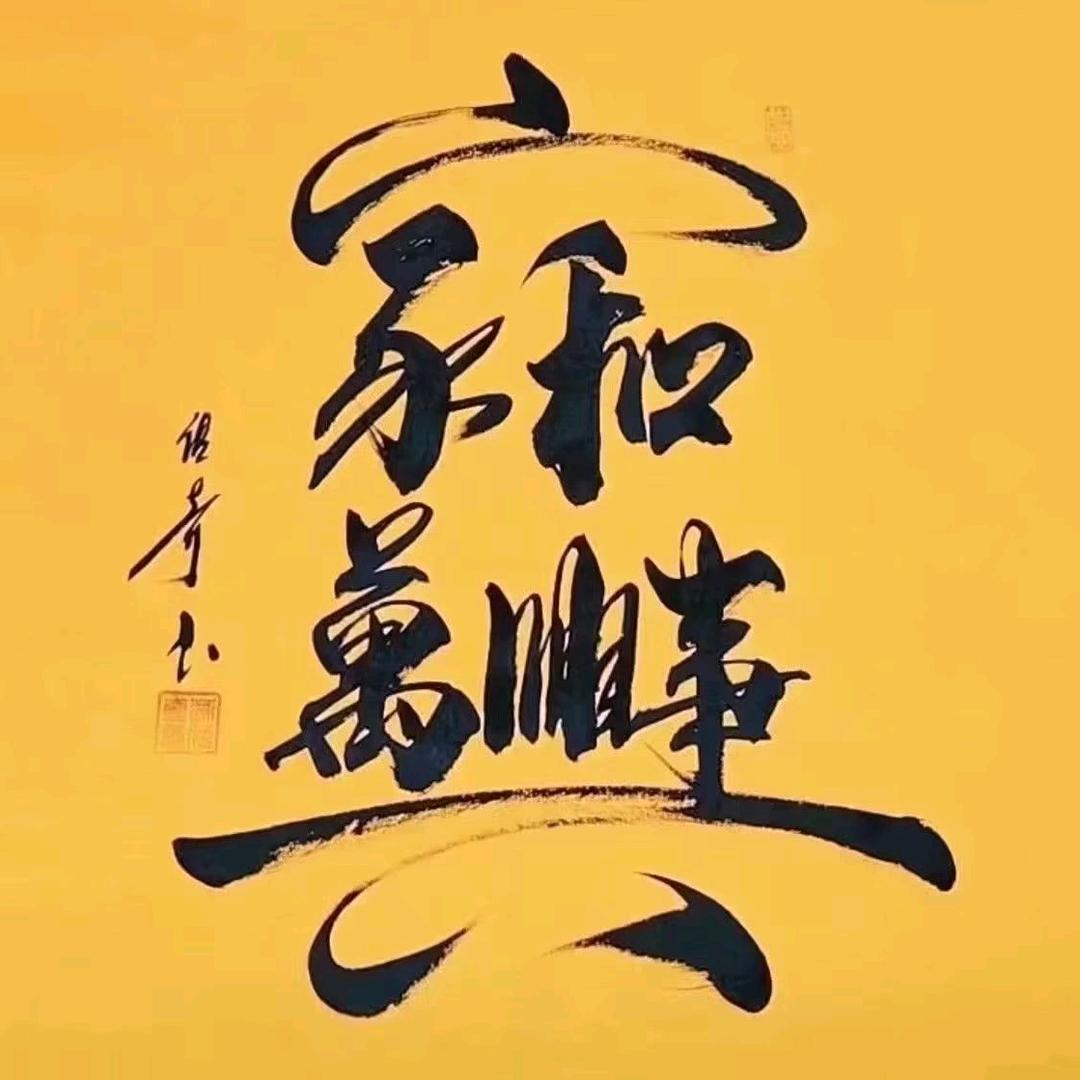 家和萬事興
奇书